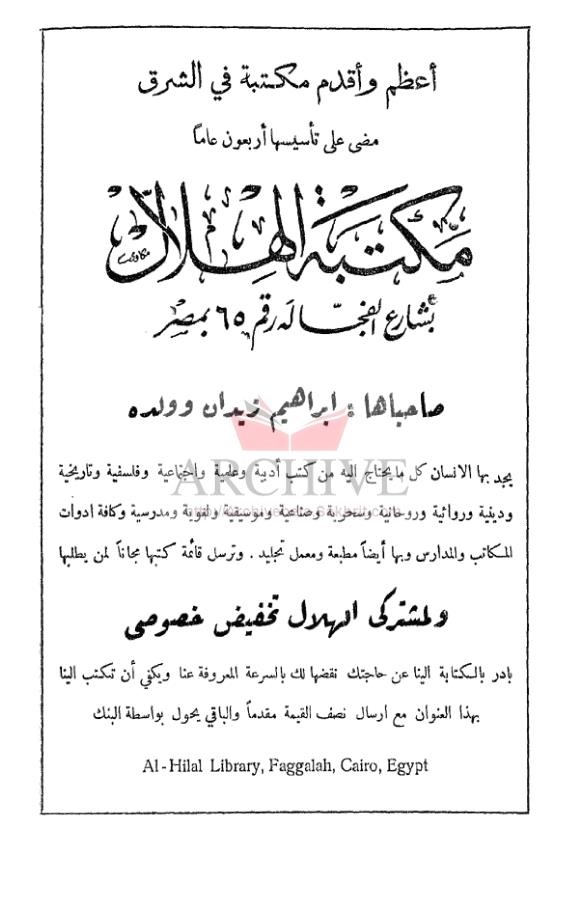 أعظم وأقدم مكتبة في الشرق
مضى على تأسيسها أربعون عاماً
مكتبة الهلال
بشارع الفجالة رقم ٦٥ بمصر
صاحباها : ابراهيم زيدان وولده
ARCHIVE
يجد بها الانسان كل ما يحتاج اليه من كتب أدبية وعلمية واجتماعية وفلسفية وتاريخية
ودينية وروائية وروحانية وسحرية وصناعية وموسيقية ولغوية ومدرسية وكافة ادوات
المكاتب والمدارس وبها أيضاً مطبعة ومعمل تجليد . وترسل قائمة كتبها مجاناً لمن يطلبها
ولمشتركى الهلال تخفيض خصوصى
بادر بالكتابة الينا عن حاجتك نقضها لك بالسرعة المعروفة عنا ويكفي أن تكتب الينا
بهذا العنوان مع ارسال نصف القيمة مقدماً والباقي يحول بواسطة البنك
Al-Hilal Library, Faggalah, Cairo, Egypt